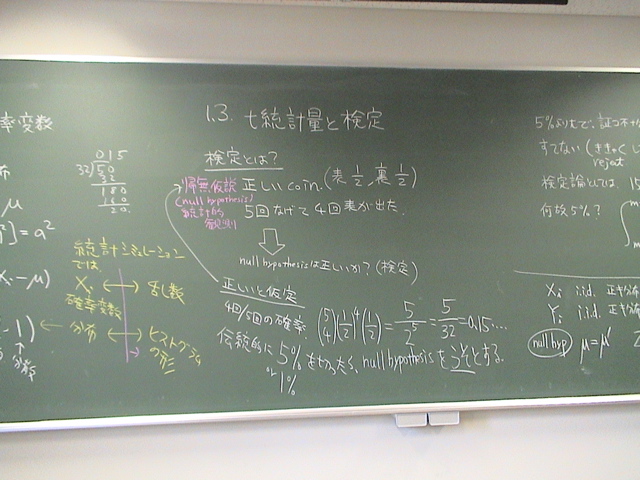 率変数
μ
] = a²
Xi - μ)
-1)
分散
0 1 5
32)50
32
180
160
20.
統計シミュレーション
では
Xi ↔ 乱数
確率変数
分布 ↔ ヒストグラム
の形
1.3. t統計量と検定
検定とは?
帰無仮説
(null hypothesis)
統計的
正しい coin. (表 1/2, 裏 1/2)
5回なげて4回表が出た.
null hypothesisは正しいか? (検定)
正しいと仮定
4回/5回の確率 (5 4)(1/2)⁴(1/2) = 5/2⁵ = 5/32 = 0.15...
伝統的に5%をせったら, null hypothesisをうそとする.
or 1%
すてない (ききゃく
reject
検定論としては,
何故5%?
Xi i.i.d. 正規分布
Yi i.i.d. 正規分布
null hyp μ = μ'